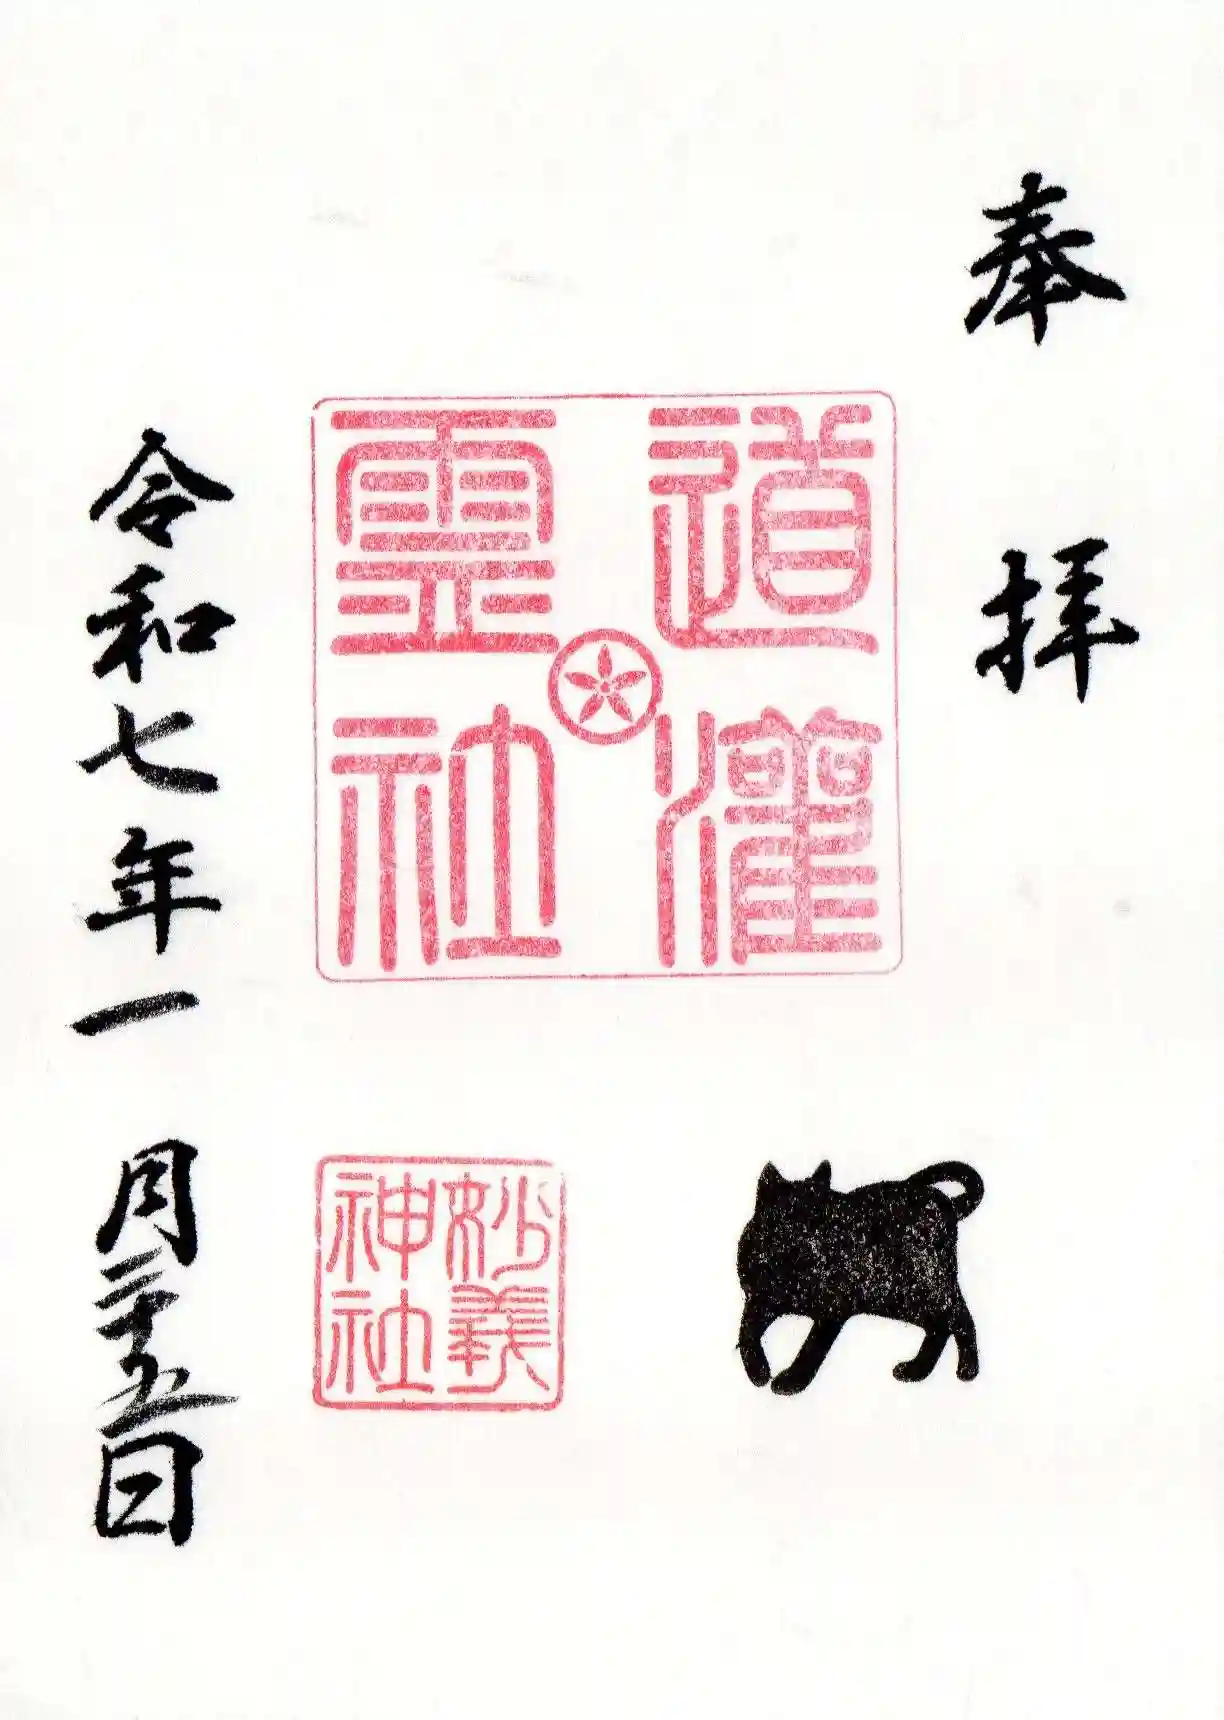 奉拝
道灌
霊社
妙義
神社
令和七年一月二十五日